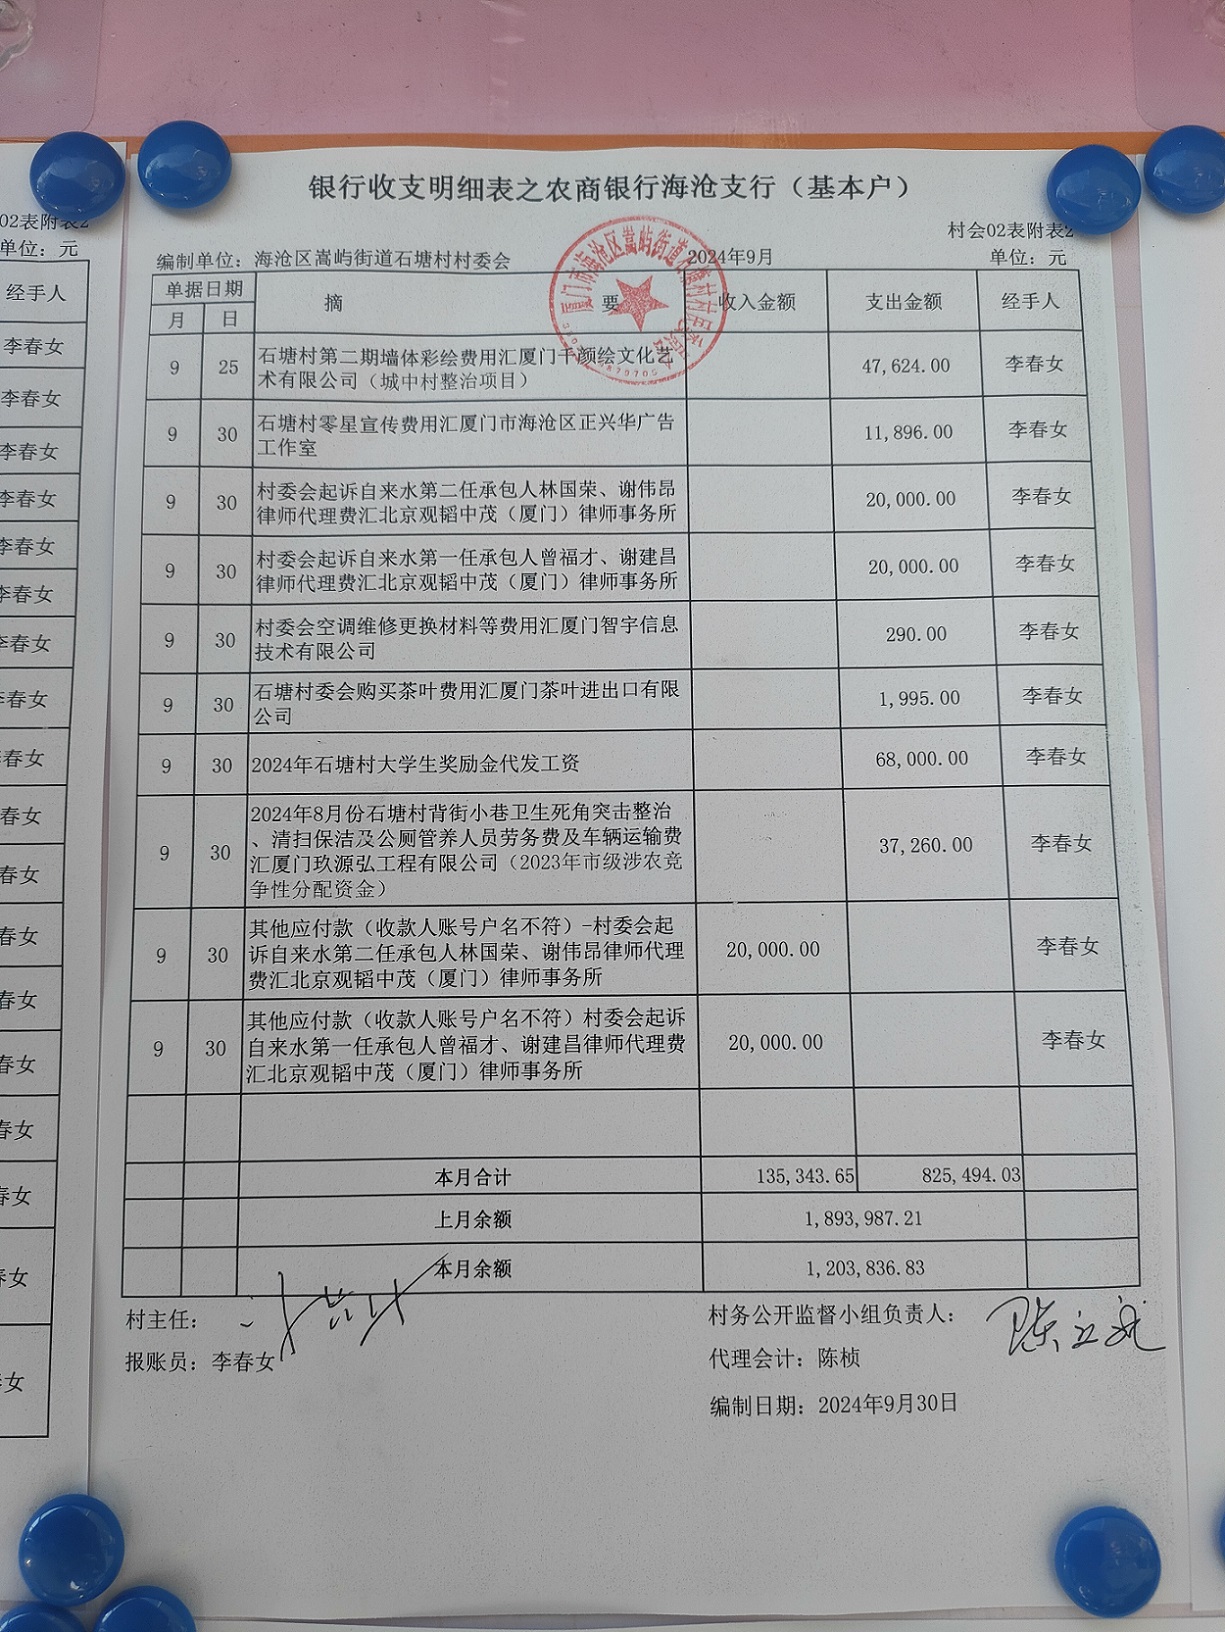 银行收支明细表之农商银行海沧支行（基本户）
村会02表附表2
编制单位：海沧区嵩屿街道石塘村村委会 2024年9月 单位：元
单据日期 摘 要 收入金额 支出金额 经手人
月 日
9 25 石塘村第二期墙体彩绘费用汇厦门千颜绘文化艺 47,624.00 李春女
术有限公司（城中村整治项目）
9 30 石塘村零星宣传费用汇厦门市海沧区正兴华广告 11,896.00 李春女
工作室
9 30 村委会起诉自来水第二任承包人林国荣、谢伟昂 20,000.00 李春女
律师代理费汇北京观韬中茂（厦门）律师事务所
9 30 村委会起诉自来水第一任承包人曾福才、谢建昌 20,000.00 李春女
律师代理费汇北京观韬中茂（厦门）律师事务所
9 30 村委会空调维修更换材料等费用汇厦门智宇信息 290.00 李春女
技术有限公司
9 30 石塘村委会购买茶叶费用汇厦门茶叶进出口有限 1,995.00 李春女
公司
9 30 2024年石塘村大学生奖励金代发工资 68,000.00 李春女
9 30 2024年8月份石塘村背街小巷卫生死角突击整治 37,260.00 李春女
、清扫保洁及公厕管养人员劳务费及车辆运输费
汇厦门玖源弘工程有限公司（2023年市级涉农竞
争性分配资金）
9 30 其他应付款（收款人账号户名不符）-村委会起 20,000.00 李春女
诉自来水第二任承包人林国荣、谢伟昂律师代理
费汇北京观韬中茂（厦门）律师事务所
9 30 其他应付款（收款人账号户名不符）村委会起诉 20,000.00 李春女
自来水第一任承包人曾福才、谢建昌律师代理费
汇北京观韬中茂（厦门）律师事务所
本月合计 135,343.65 825,494.03
上月余额 1,893,987.21
本月余额 1,203,836.83
村主任： 村务公开监督小组负责人：
报账员：李春女 代理会计：陈桢
编制日期：2024年9月30日
02表附表2
单位：元
经手人
李春女
李春女
李春女
李春女
李春女
李春女
李春女
李春女
春女
春女
春女
春女
春女
春女
春女
春女
女
女